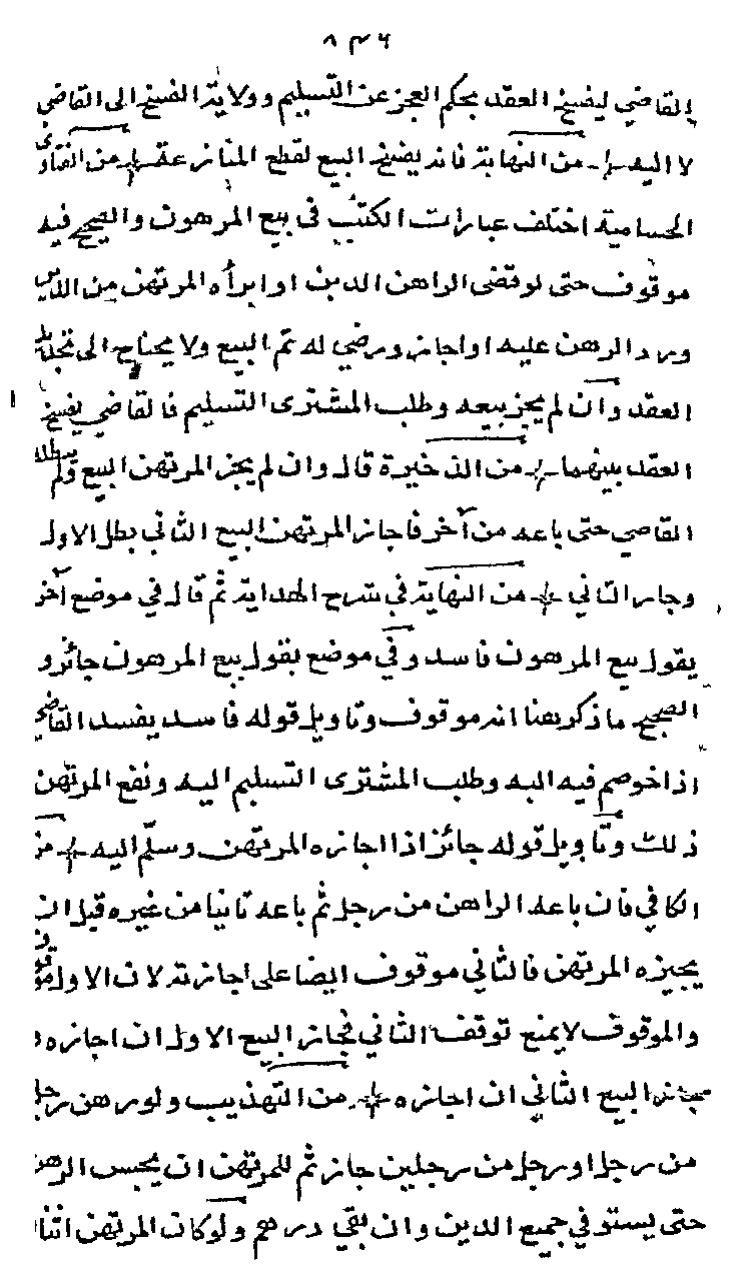 ٨٣٦
القاضي ليفسخ العقد بحكم العجز عن التسليم وولاية الفسخ الى القاضي
لا اليه من النهاية فانه يفسخ البيع لقطع المنازعة من الفتاوى
الحسامية اختلف عبارات الكتب في بيع المرهون والصحيح فيه
موقوف حتى لو قضى الراهن الدين او ابرأه المرتهن من الدين
ورد الرهن عليه او اجاز ورضي له تم البيع ولا يحتاج الى تجديد
العقد وان لم يجز بيعه وطلب المشترى التسليم فالقاضي يفسخ
العقد بينهما من الذخيرة قال وان لم يجز المرتهن البيع ولم يبطله
القاضي حتى باعه من آخر فاجاز المرتهن البيع الثاني بطل الاول
وجاز الثاني من النهاية في شرح الهداية ثم قال في موضع آخر
يقول بيع المرهون فاسد وفي موضع يقول بيع المرهون جائز و
الصحيح ما ذكر هنا انه موقوف وتاويل قوله فاسد يفسد القاضي
اذا خوصم فيه اليه وطلب المشترى التسليم اليه ونفع المرتهن
ذلك وتاويل قوله جائز اذا اجازه المرتهن وسلم اليه من
الكافي فان باعه الراهن من رجل ثم باعه ثانيا من غيره قبل ان
يجيزه المرتهن فالثاني موقوف ايضا على اجازته لان الاول موقوف
والموقوف لا يمنع توقف الثاني فجاز البيع الاول ان اجازه
جاز البيع الثاني ان اجازه من التهذيب ولو رهن رجل
من رجل او رجل من رجلين جاز ثم للمرتهن ان يحبس الرهن
حتى يستوفي جميع الدين وان بقي درهم ولو كان المرتهن اثنان